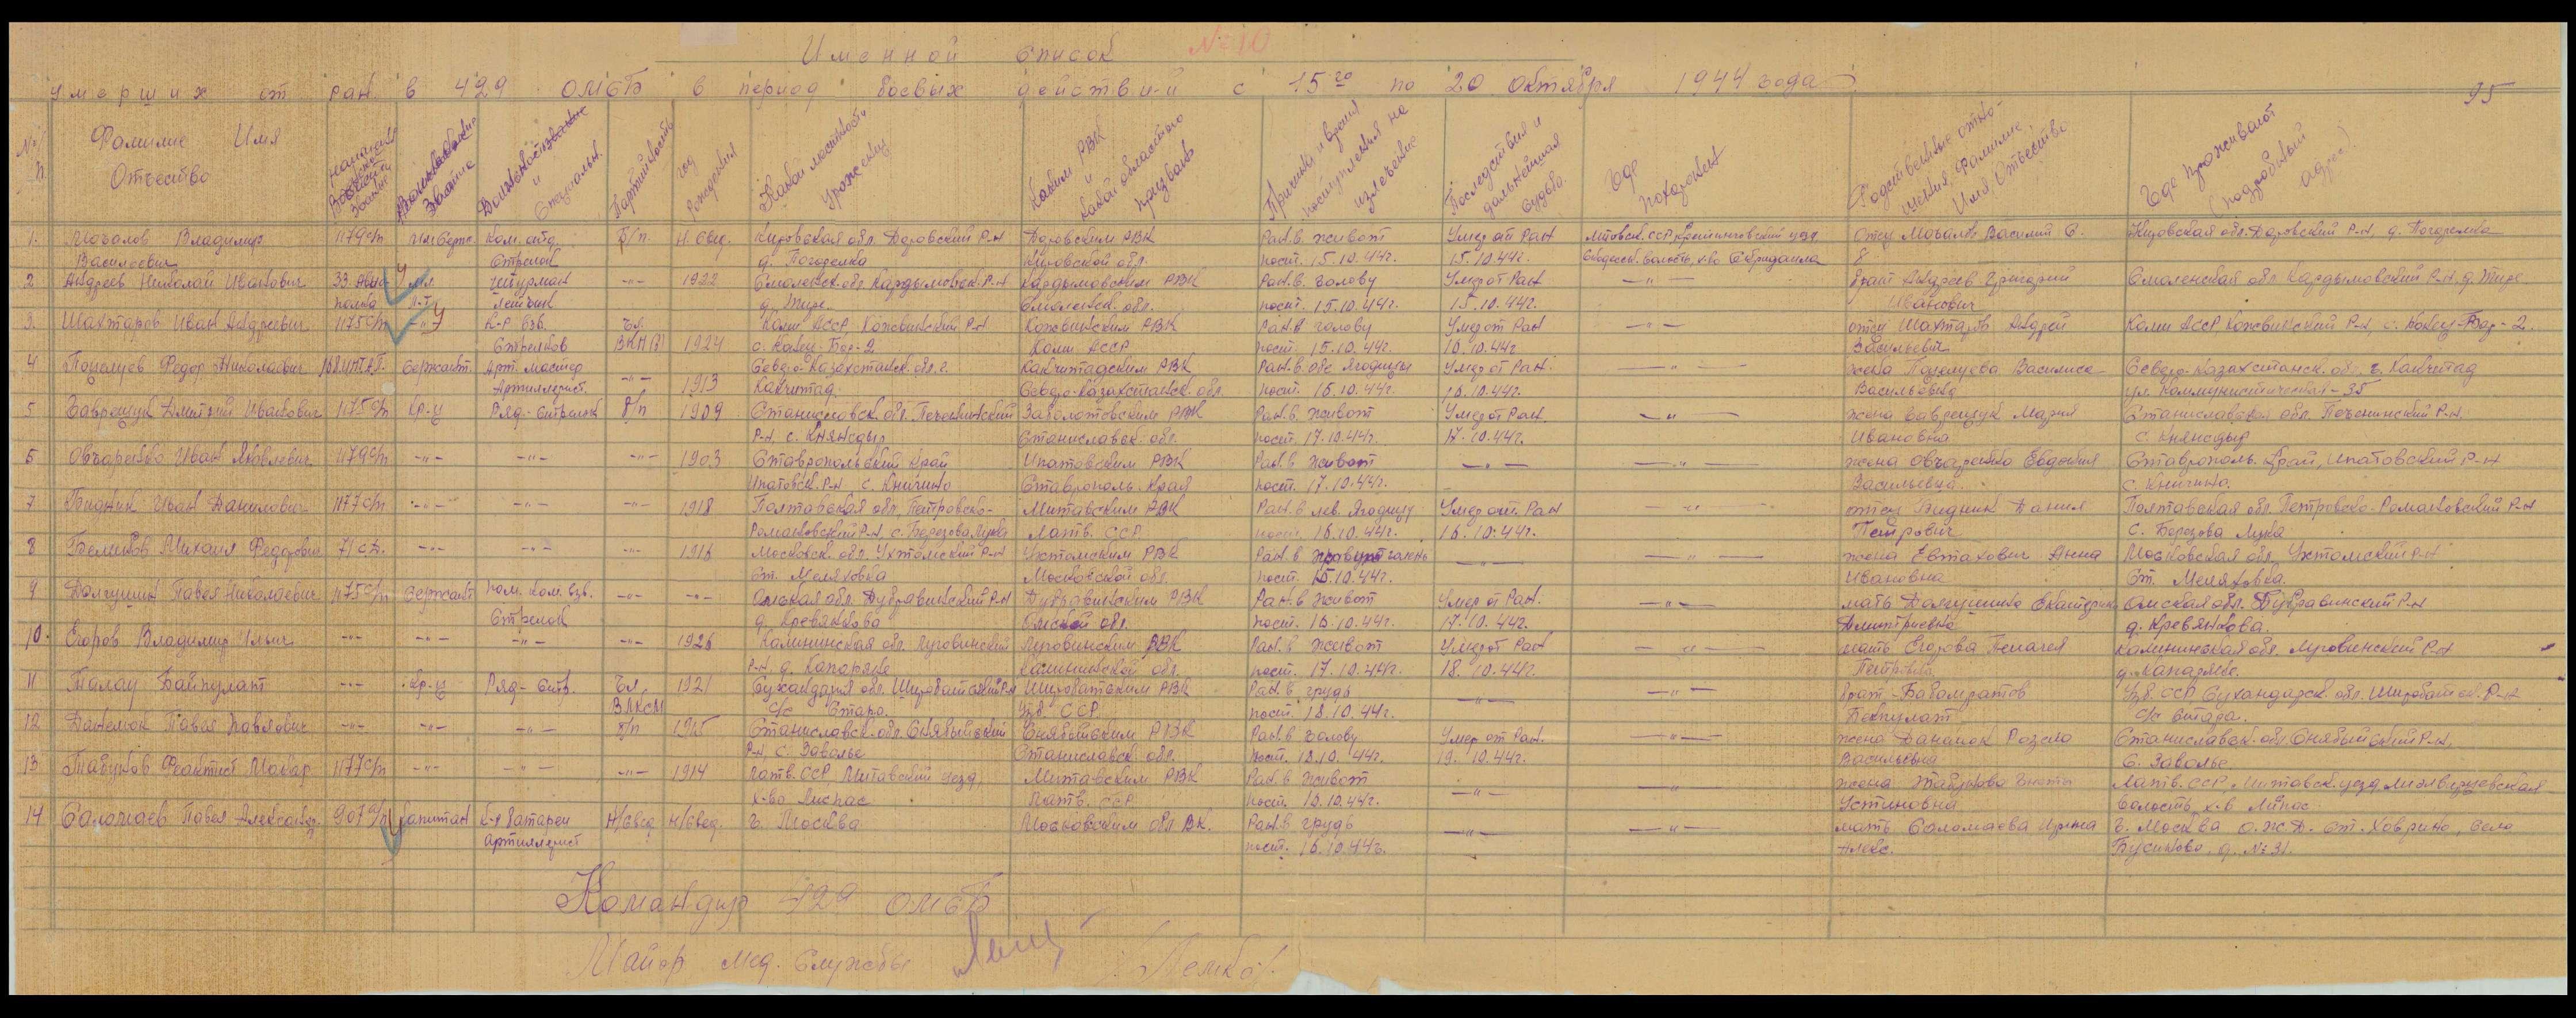 Именной список №10
умерших от ран в 429 ОМСБ в период боевых действий с 15го по 20 Октября 1944 года
95
№ п/п Фамилие Имя Отчество Воинское Звание Должность и Специальн. Партийность год рождения Какой местности Уроженец Каким РВК и какой области призван Причины и время поступления на излечение Последствия и дальнейшая судьба Где похоронен Родственные отношения, Фамилие, Имя, Отчество Где проживают (подробный адрес)
1. Мочалов Владимир 1179 с/п Ком. отд. Б/п. Н. Свед. Кировская обл. Даровский Р-н Даровским РВК Ран. в живот Умер от Ран Литовск. ССР отец Мочалов Василий С. Кировская обл. Даровский Р-н д. Погорелка
Васильевич Стрелок д. Погорелка Кировской обл. пост. 15.10.44г. 15.10.44г.
2 Андреев Николай Иванович 33 авиа мл штурман -"- 1922 Смоленск. обл. Кардымовск. Р-н Кардымовским РВК Ран. в голову Умер от Ран -"- брат Андреев Григорий Смоленская обл Кардымовский Р-н д. Тире
полка л-т летчик д. Тире Смоленск. обл. пост. 15.10.44г. 15.10.44г. Иванович
3. Шахтаров Иван Андреевич 1175 с/п -"- К-р взв. Чл. Коми АССР Кожвинский Р-н Кожвинским РВК Ран. в голову Умер от Ран -"- отец Шахтаров Андрей Коми АССР Кожвинский Р-н, с. Конец-Бор-2.
Стрелков ВКП(б) 1924 с. Конец-Бор-2 Коми АССР пост. 15.10.44г. 16.10.44г Васильевич
4 Поцелуев Федор Николаевич Сержант. Арт. мастер Северо-Казахстанск. обл. г. Какчитадским РВК Ран. в обе Ягодицы Умер от Ран. -"- жена Поцелуева Василиса Северо-Казахстанск. обл. г. Какчитад
Артиллерист. -"- 1913 Какчитад. Северо-Казахстанск. обл. пост. 16.10.44г. 16.10.44г. Васильевна ул. Коммунистическая-35
5 Гаврещук Дмитрий Иванович 1175 с/п Кр-ц Ряд.-Стрелок б/п 1909 Станиславск. обл. Печенинский Заболотовским РВК Ран. в живот Умер от Ран. -"- жена Гаврещук Мария Станиславская обл. Печенинский Р-н,
Р-н, с. Княжсдыр Станиславск. обл. пост. 17.10.44г. 17.10.44г. Ивановна с. Княжсдыр
6 Овчаренко Иван Яковлевич 1179 с/п -"- -"- -"- 1903 Ставропольский край Ипатовским РВК Ран. в живот -"- -"- жена Овчаренко Евдокия Ставрополь. Край, Ипатовский Р-н
Ипатовск. Р-н с. Кничино Ставрополь. Края пост. 17.10.44г. Васильевна. с. Кничино.
7 Бидник Иван Данилович 1177 с/п -"- -"- -"- 1918 Полтавская обл, Петровско- Митавским РВК Ран. в лев. Ягодицу Умер от. Ран -"- отец Бидник Данил Полтавская обл. Петровско-Романовский Р-н
Романовский Р-н с. Березова Лука Латв. ССР пост. 16.10.44г. 16.10.44г. Петрович с. Березова Лука
8 Беликов Михаил Федорович -"- -"- -"- 1916 Московск. обл. Ухтомский Р-н Ухтомским РВК Ран. в правую голень -"- -"- жена Евтахович Анна Московская обл. Ухтомский Р-н
ст. Меляховка Московской обл. пост. 15.10.44г. Ивановна ст. Меляховка.
9 Долгушин Павел Николаевич 1175 с/п Сержант Пом. Ком. взв. -"- -"- Омская обл. Дубравинский Р-н Дубравинским РВК Ран. в живот Умер от Ран. -"- мать Долгушина Екатерина Омская обл. Дубравинский Р-н
Стрелок д. Кревянкова Омской обл. пост. 16.10.44г. 17.10.44г. Дмитриевна д. Кревянкова.
10. Егоров Владимир Ильич -"- -"- -"- -"- 1926 Калининская обл. Луговинский Луговинским РВК Ран. в живот Умер от Ран -"- мать Егорова Пелагея Калининская обл. Луговинский Р-н
пост. 17.10.44г. 18.10.44г. Петровна
11 Талау Байпулат -"- Кр-ц Ряд-Стр. Чл. 1921 Шерабатским РВК Ран. в грудь -"- -"- брат-Бабамратов Узб. ССР Сухандарск. обл. Шерабатск. Р-н
ВЛКСМ с/с Стара. Узб. ССР пост. 18.10.44г. Бекпулат с/с Стара.
12 Данелюк Павел Павлович -"- -"- -"- б/п 1915 Станиславск. обл. Снятынский Снятынским РВК Ран. в голову Умер от Ран. -"- жена Данилюк Розена Станиславск. обл. Снятынский Р-н,
Р-н, с. Завалье Станиславск. обл. пост. 18.10.44г. 19.10.44г. Васильевна с. Завалье.
13 Табунов Феоктист Макар 1177 с/п -"- -"- -"- 1914 Латв. ССР Митавский уезд Митавским РВК Ран. в живот -"- -"- жена Табунова Латв. ССР, Митавск. уезд
х-во Лиспас Латв. ССР пост. 18.10.44г. Устиновна волость, х-в Липас
14 Саломаев Павел Александр. 907 Капитан К-р батареи Н/свед Н/свед. г. Москва Московским обл ВК. Ран. в грудь -"- -"- мать Саломаева Ирина г. Москва О.Ж.Д. ст. Ховрино, село
артиллерист пост. 16.10.44г. Алекс. Бусиново, д. №31.
Командир 429 ОМСБ
Майор мед. службы /Лемко/